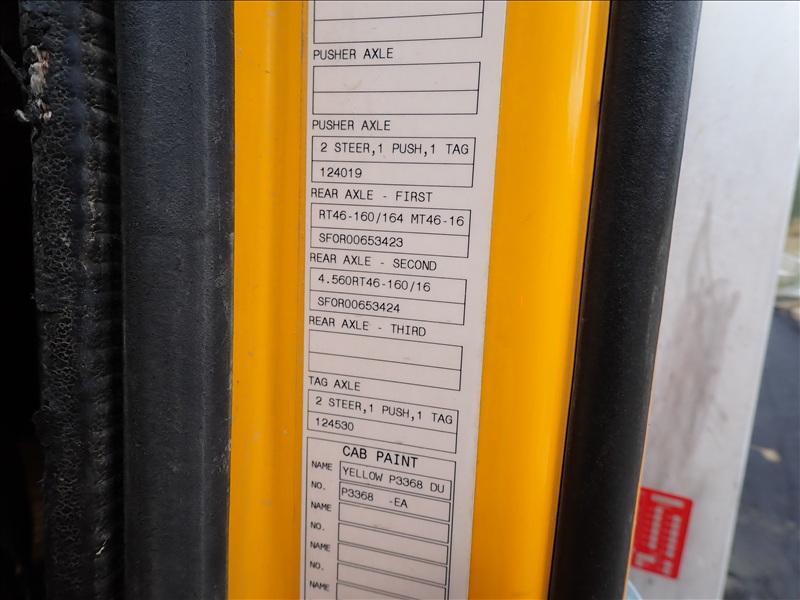 PUSHER AXLE
PUSHER AXLE
2 STEER,1 PUSH,1 TAG
124019
REAR AXLE - FIRST
RT46-160/164 MT46-16
SF0R00653423
REAR AXLE - SECOND
4.560RT46-160/16
SF0R00653424
REAR AXLE - THIRD
TAG AXLE
2 STEER,1 PUSH,1 TAG
124530
CAB PAINT
NAME YELLOW P3368 DU
NO. P3368 -EA
NAME
NO.
NAME
NO.
NAME